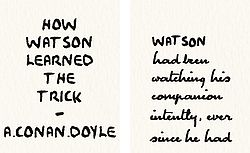 HOW
WATSON
LEARNED
THE
TRICK
-
A.CONAN.DOYLE
WATSON
had been
watching his
companion
intently, ever
since he had